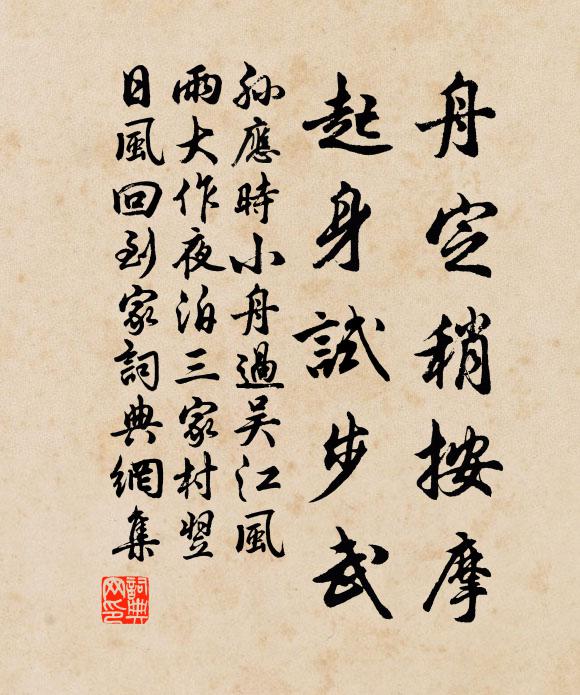 舟定稍按摩
起身試步武
孫應時小舟過吴江風
雨大作夜泊三家村翌
日風回到家詞典網集
詞典
网印